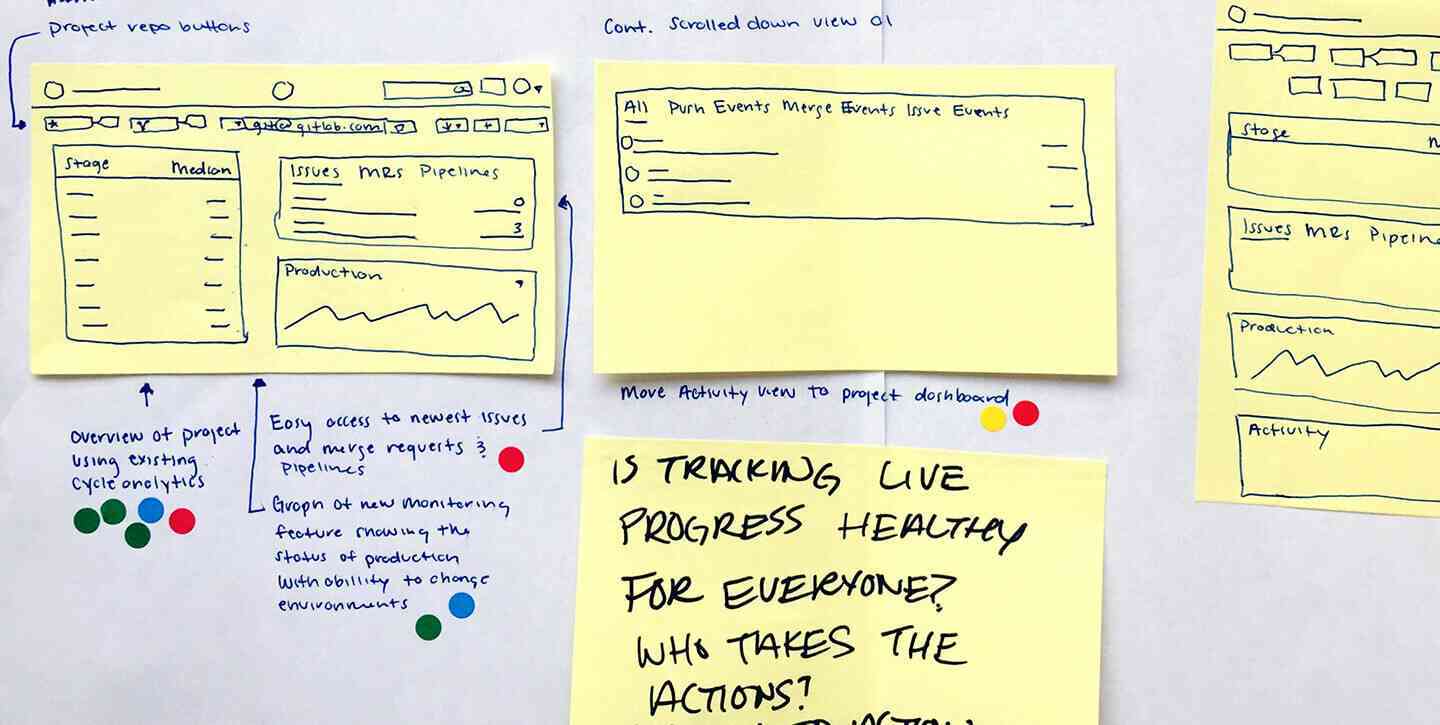 Project repo buttons
git@gitlab.com
Stage Median
Issues MRs Pipelines
0
3
Production
Overview of project
using existing
cycle analytics
Easy access to newest issues
and merge requests &
Pipelines
Graph of new monitoring
feature showing the
status of production
with abillity to change
environments
Cont. Scrolled down view 01
All Push Events Merge Events Issue Events
Move Activity view to project dashboard
IS TRACKING LIVE
PROGRESS HEALTHY
FOR EVERYONE?
WHO TAKES THE
ACTIONS?
Stage
Issues MRs
Production
Activity